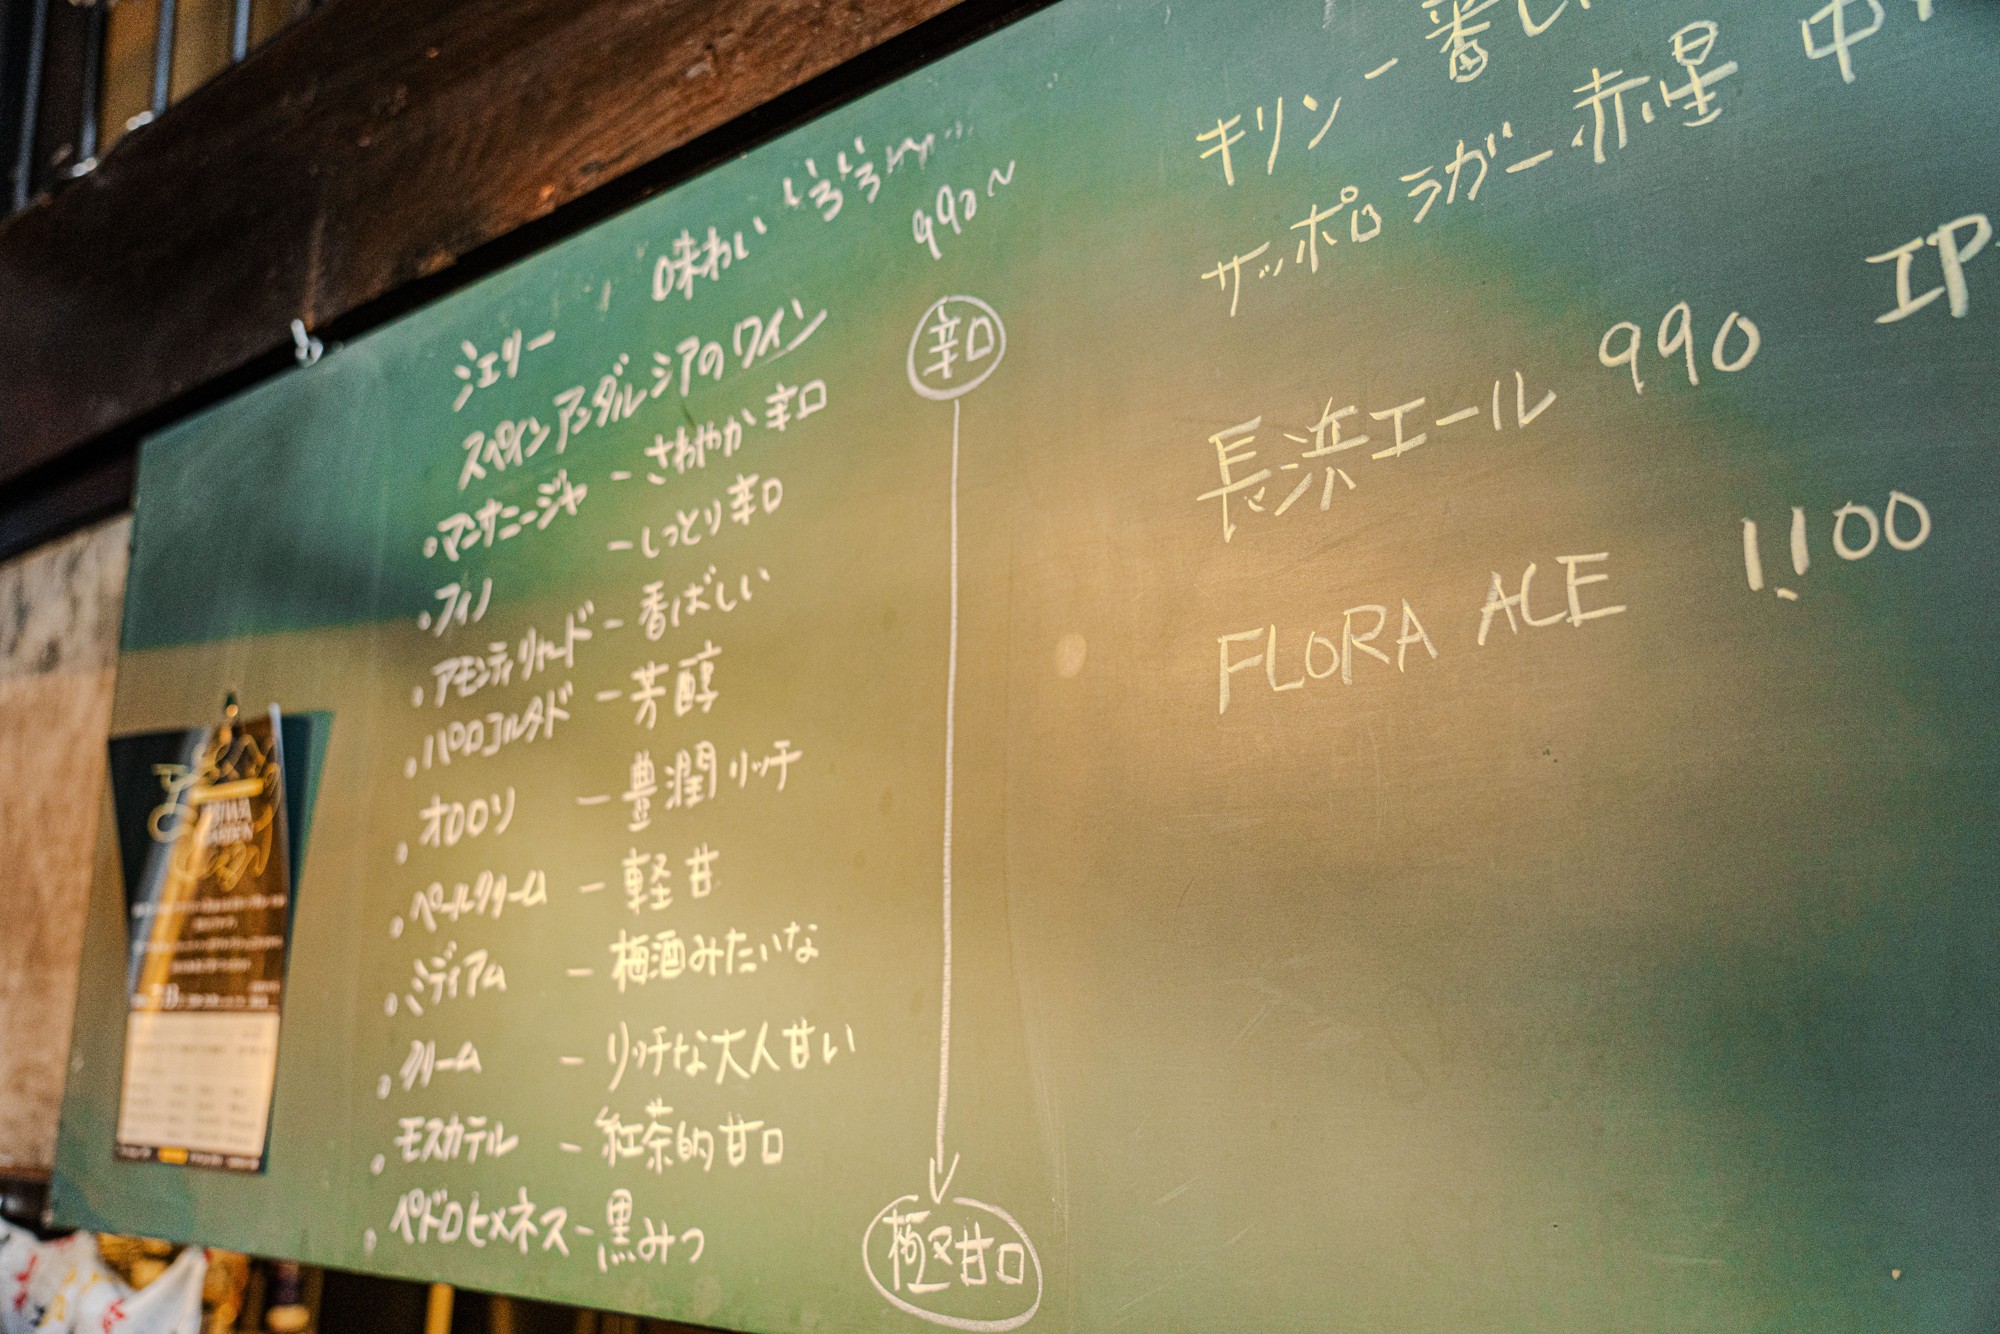 ジェリー 味わい いろいろ
990～
スペイン アンダルシアの ワイン
・マンサニージャ － さわやか 辛口
・フィノ － しっとり 辛口
・アモンティリャード － 香ばしい
・パロコルタド － 芳醇
・オロロソ － 豊潤 リッチ
・ペールクリーム － 軽甘
・ミディアム － 梅酒みたいな
・クリーム － リッチな大人甘い
・モスカテル － 紅茶的甘口
・ペドロヒメネス － 黒みつ
辛口
極甘口
キリン 一番し
サッポロ ラガー 赤星 中
IP
長浜エール 990
FLORA ALE 1,100